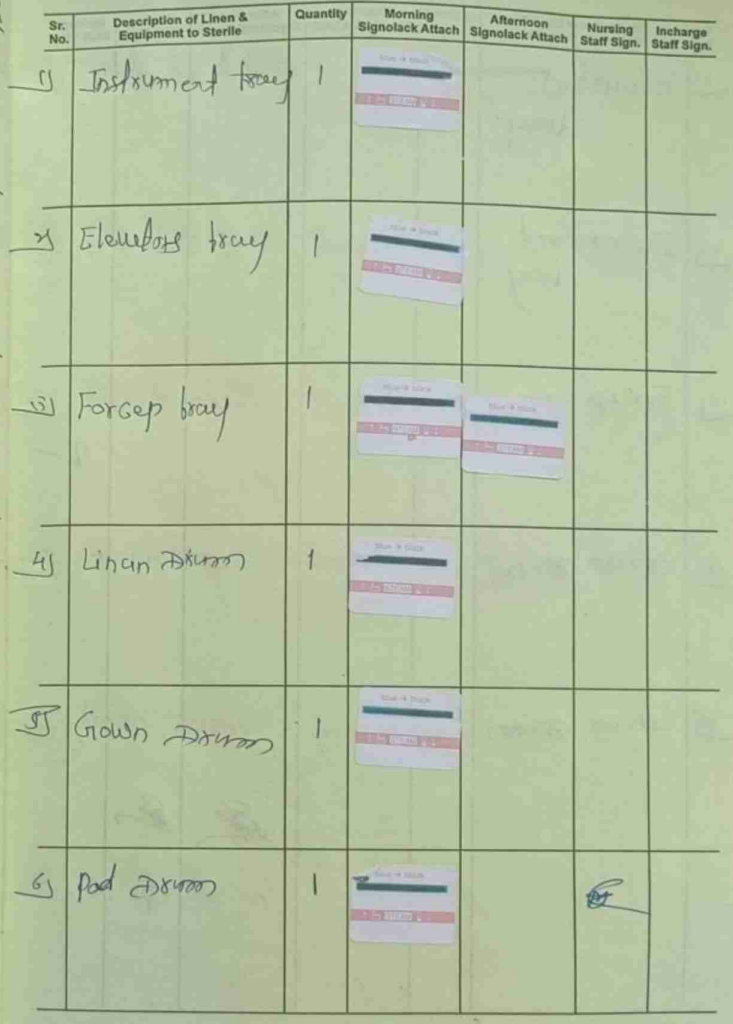 Sr. No. Description of Linen & Equipment to Sterile Quantity Morning Signolack Attach Afternoon Signolack Attach Nursing Staff Sign. Incharge Staff Sign.
1) Instrument tray 1
STEAM
2) tray 1
STEAM
3) Forcep tray 1
STEAM STEAM
4) Linan Drum 1
STEAM
5) Gown Drum 1
STEAM
6) Pad Drum 1
STEAM